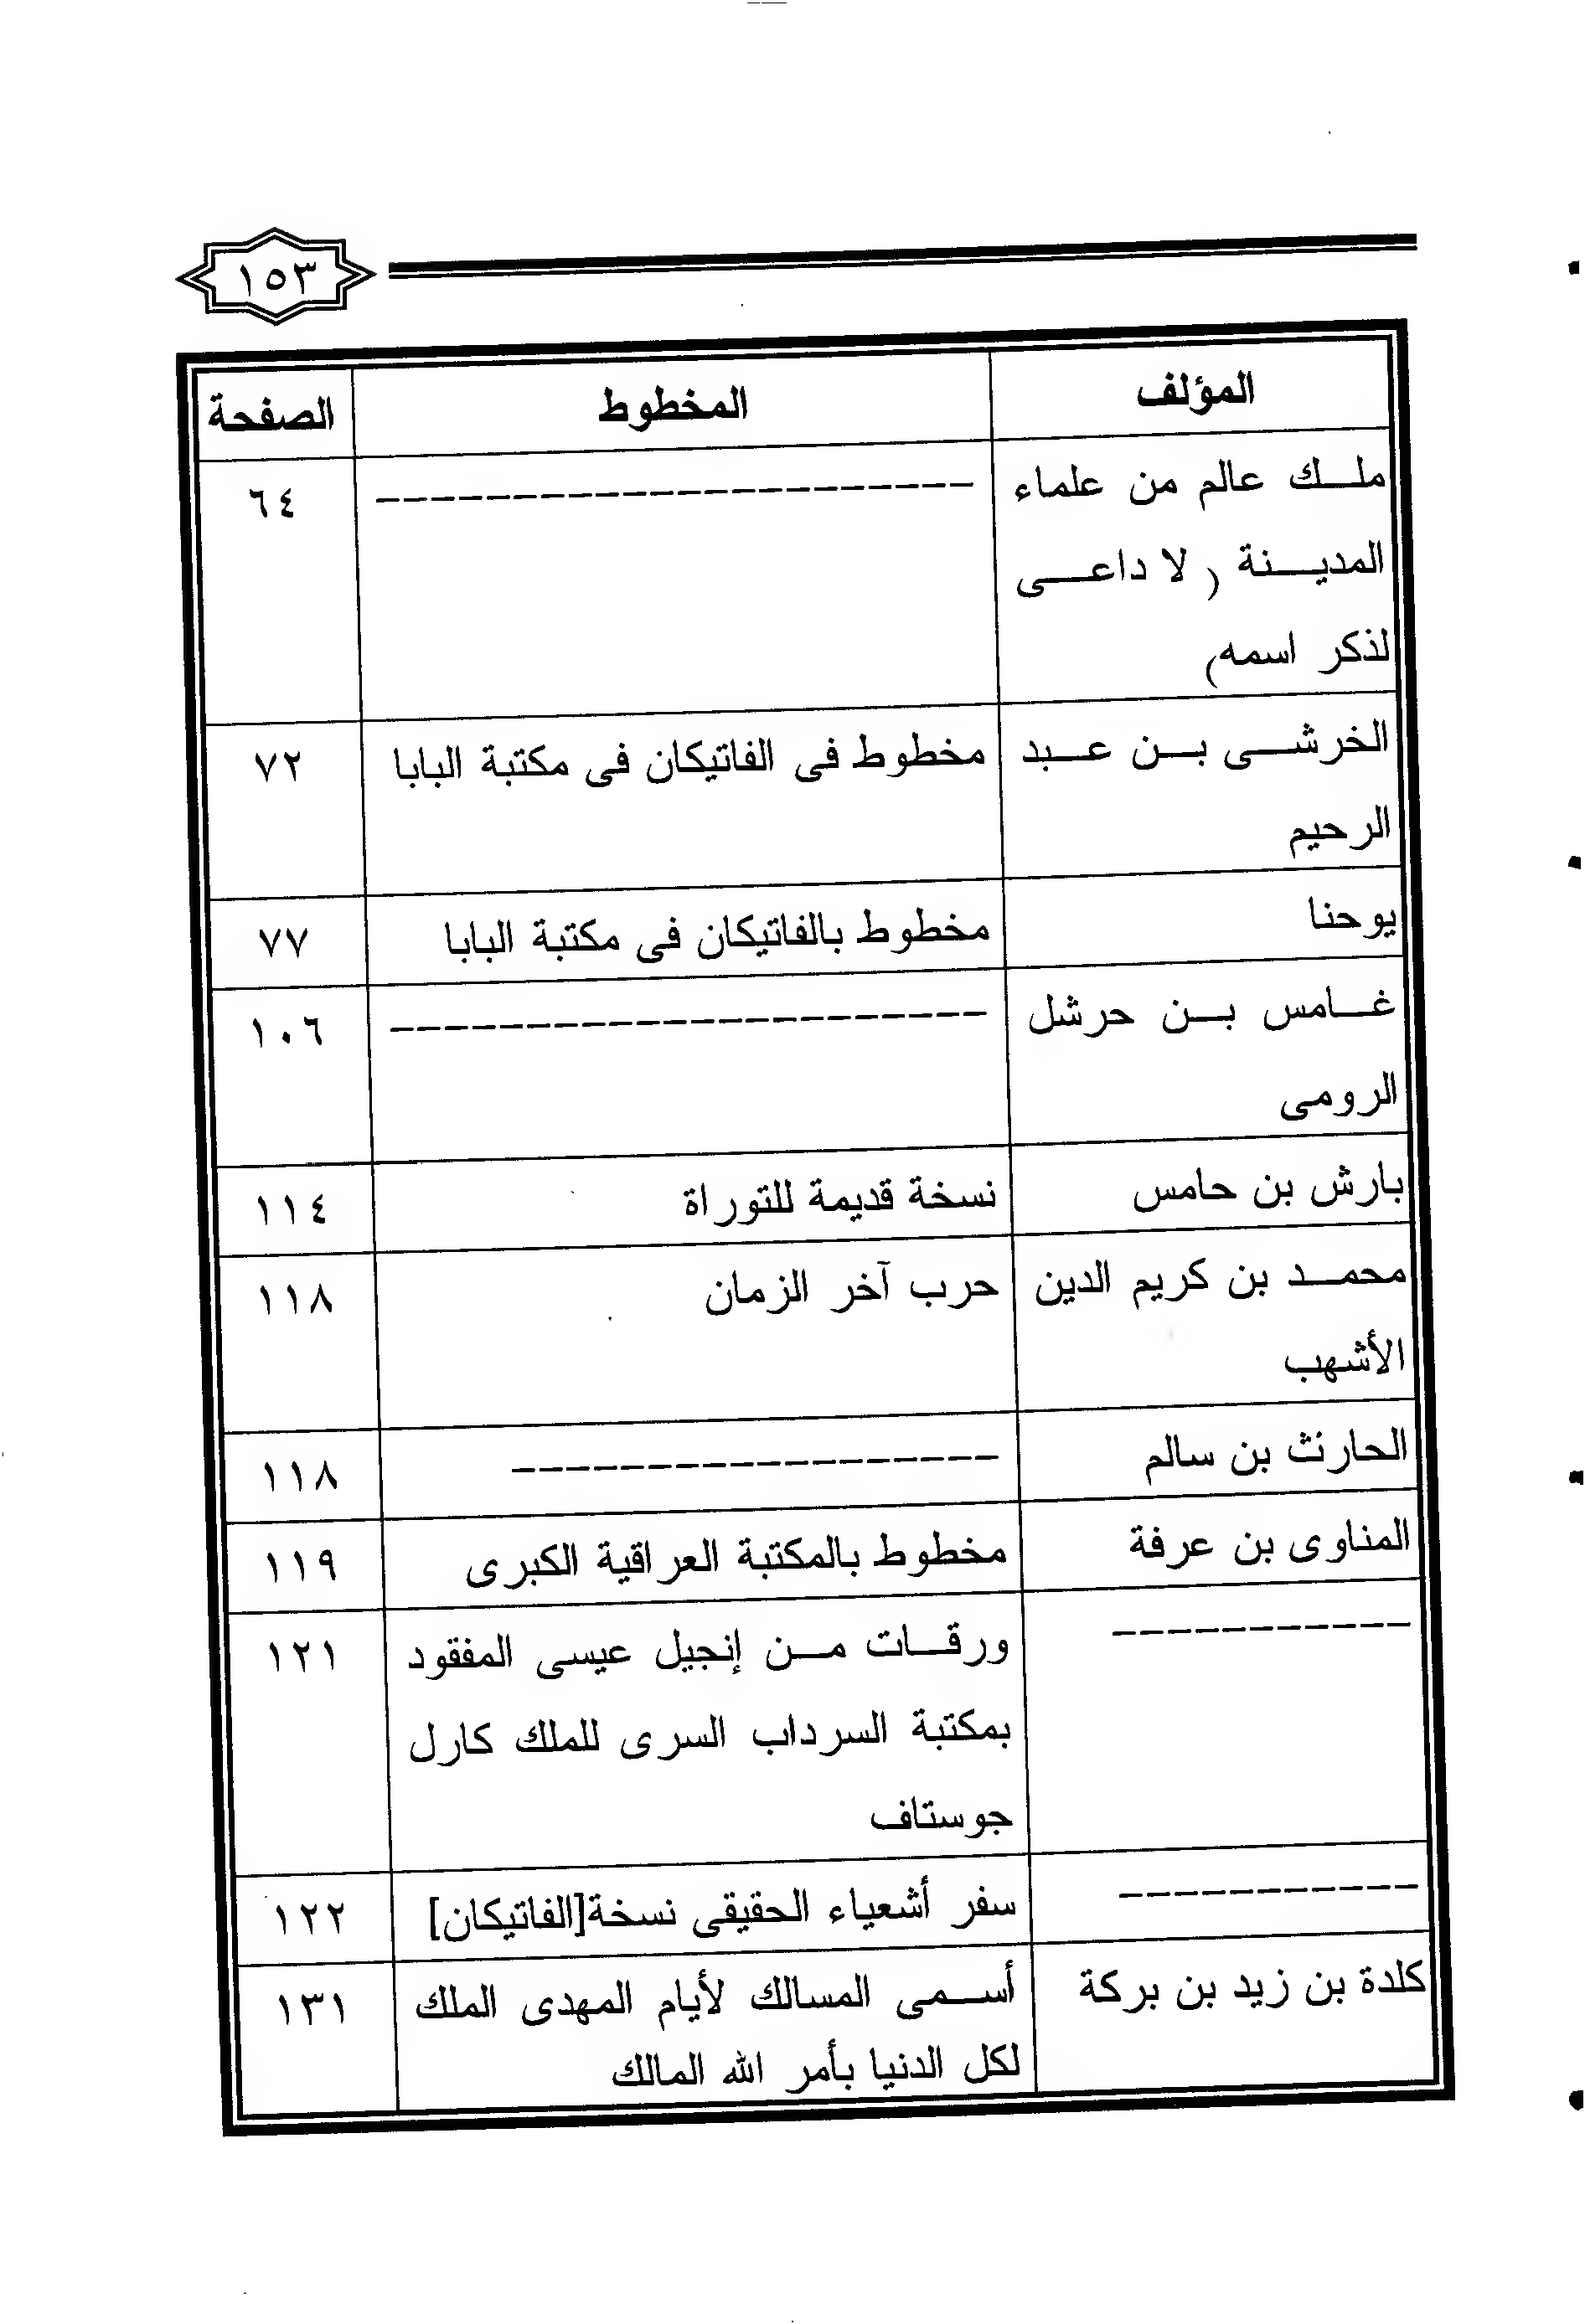 ١٥٣
المؤلف المخطوط الصفحة
ملك عالم من علماء ------------------------ ٦٤
المدينة ( لا داعى
لذكر اسمه)
الخرشى بن عبد مخطوط فى الفاتيكان فى مكتبة البابا ٧٢
الرحيم
يوحنا مخطوط بالفاتيكان فى مكتبة البابا ٧٧
غامس بن حرشل ------------------------ ١٠٦
الرومى
بارش بن حامس نسخة قديمة للتوراة ١١٤
محمد بن كريم الدين حرب آخر الزمان ١١٨
الأشهب
الحارث بن سالم ------------------ ١١٨
المناوى بن عرفة مخطوط بالمكتبة العراقية الكبرى ١١٩
----------- ورقات من إنجيل عيسى المفقود ١٢١
بمكتبة السرداب السرى للملك كارل
جوستاف
----------- سفر أشعياء الحقيقى نسخة[الفاتيكان] ١٢٢
كلدة بن زيد بن بركة أسمى المسالك لأيام المهدى الملك ١٣١
لكل الدنيا بأمر الله المالك